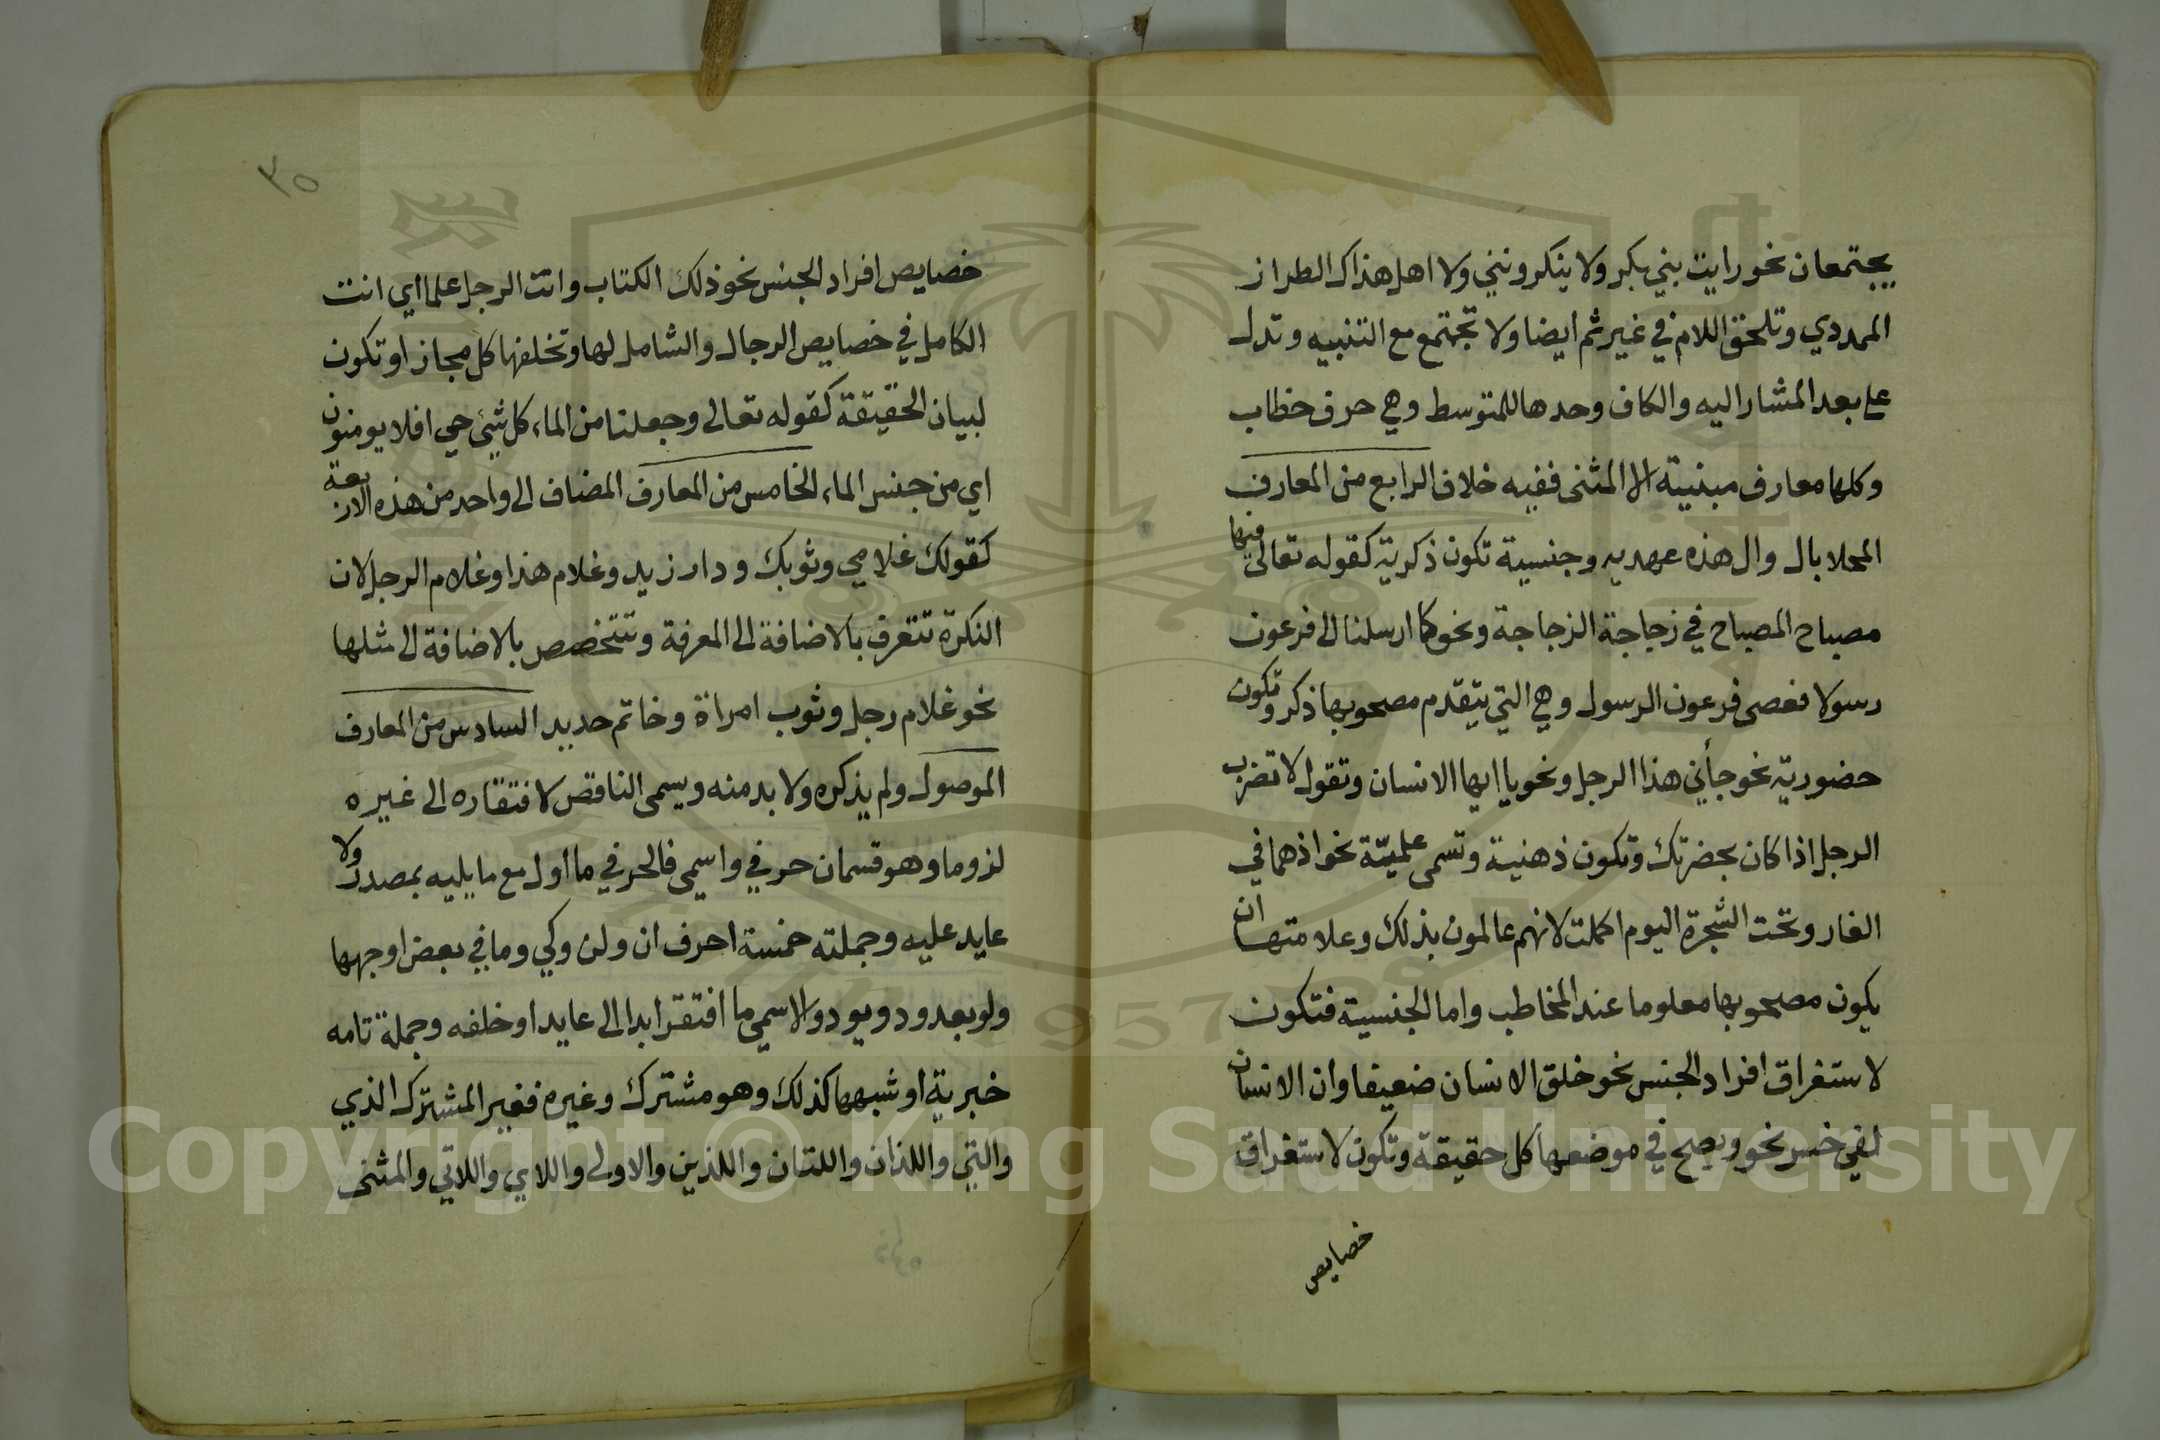 يجتمعان نحو رايت بني بكر ولا ينكرونني ولا اهل هذاك الطراز
الممددي وتلحق اللام في غير ثم ايضا ولا تجتمع مع التنبيه وتدل
على بعد المشار اليه والكاف وحدها للمتوسط وهي حرف خطاب
وكلها معارف مبنية الا المثنى ففيه خلاف الرابع من المعارف
المحلا بال وال هذه عهديه وجنسية تكون ذكرية كقوله تعالى فيها
مصباح المصباح في زجاجة الزجاجة ونحو كما ارسلنا الى فرعون
رسولا فعصى فرعون الرسول وهي التي يتقدم مصحوبها ذكر وتكون
حضورية نحو جأني هذا الرجل ونحو يا ايها الانسان وتقول لا تضرب
الرجل اذا كان بحضرتك وتكون ذهنية وتسمى علميّة نحو اذ هما في
الغار وتحت الشجرة اليوم اكملت لانهم عالمون بذلك وعلامتها ان
يكون مصحوبها معلوما عند المخاطب واما الجنسية فتكون
لاستغراق افراد الجنس نحو خلق الانسان ضعيفا وان الانسان
لفي خسر نحو ويصح في موضعها كل حقيقة وتكون لاستغراق
خصايص
٣٥
خصايص افراد الجنس نحو ذلك الكتاب وانت الرجل علما اي انت
الكامل في خصايص الرجال والشامل لها وتخلفها كل مجاز او تكون
لبيان الحقيقة كقوله تعالى وجعلنا من الماء كل شئ حي افلا يومنون
اي من جنس الماء الخامس من المعارف المضاف الى واحد من هذه الاربعة
كقولك غلامي وثوبك ودار زيد وغلام هذا وغلام الرجل لان
النكرة تتعرف بالاضافة الى المعرفة وتتخصص بالاضافة الى مثلها
نحو غلام رجل وثوب امراة وخاتم حديد السادس من المعارف
الموصول ولم يذكره ولا بد منه ويسمى الناقص لافتقاره الى غيره
لزوما وهو قسمان حرفي واسمي فالحرفي ما اول مع ما يليه بمصدر ولا
عايد عليه وجملته خمسة احرف ان ولن وكي وما في بعض اوجهها
ولو بعد ود ويود والاسمي ما افتقر ابدا الى عايد او خلفه وجملة تامه
خبرية او شبهها كذلك وهو مشترك وغيره فغير المشترك الذي
والتي واللذان واللتان واللذين والاولى واللاي واللاتي والمثنى
Copyright © King Saud University
1957